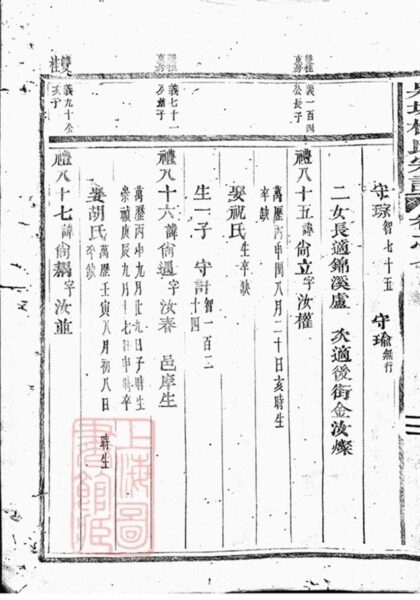 守琮智七十五 守瑜無行
二女長適錦溪盧 次適後街金汝燦
義一百四公長子
禮八十五諱尚立字汝權
萬曆丙申閏八月二十日亥時生
卒缺
娶祝氏生卒缺
生一子 守計智一百二十四
義七十一公
禮八十六諱尚遇字汝泰 邑庠生
萬曆丙申九月廿九日子時生
崇禎庚辰九月十七日申時卒
娶胡氏萬曆壬寅八月初八日 時生
卒缺
雙桂義九十公次子
禮八十七諱尚字汝並
上海圖書館臧